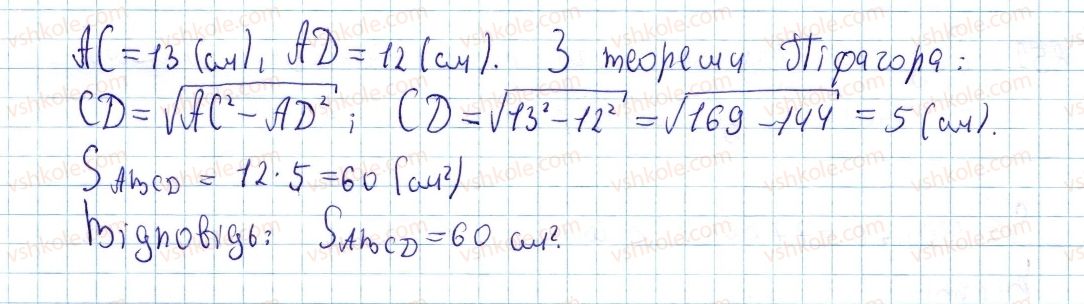 AC = 13 (см), AD = 12 (см). З теореми Піфагора:
CD = √(AC² − AD²); CD = √(13² − 12²) = √(169 − 144) = 5 (см).
S_ABCD = 12 · 5 = 60 (см²)
Відповідь: S_ABCD = 60 см².